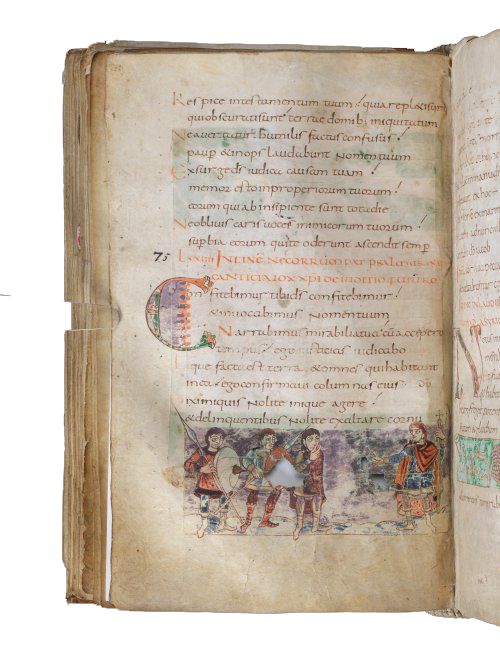 Respice intestamentum tuum quia repl&isunt
quiobscuratisunt terrae domib; iniquitatum
Neavertatur humilis factus confusus
paup &inops laudabunt Nomentuum
Exsurge ds iudica causam tuam
memor esto inproperiorum tuorum
eorum quiab insipiente sunt totadie
Neobliuiscaris uoces inimicorum tuorum
supbia eorum quite oderunt ascendit semp
75 Lxxiiii IN FINE NECORRUMPAT
CANTICI
Confitebimur tibi ds confitebimur
&inuocabimus Nomentuum
Narrabimus mirabiliatua cu accepero
tempus ego iustitias iudicabo
Liquefacta est terra &omnes quihabitant
inea ego confirmaui columnas eius
Dixi iniquis Nolite inique agere
&delinquentibus Nolite exaltare cornu